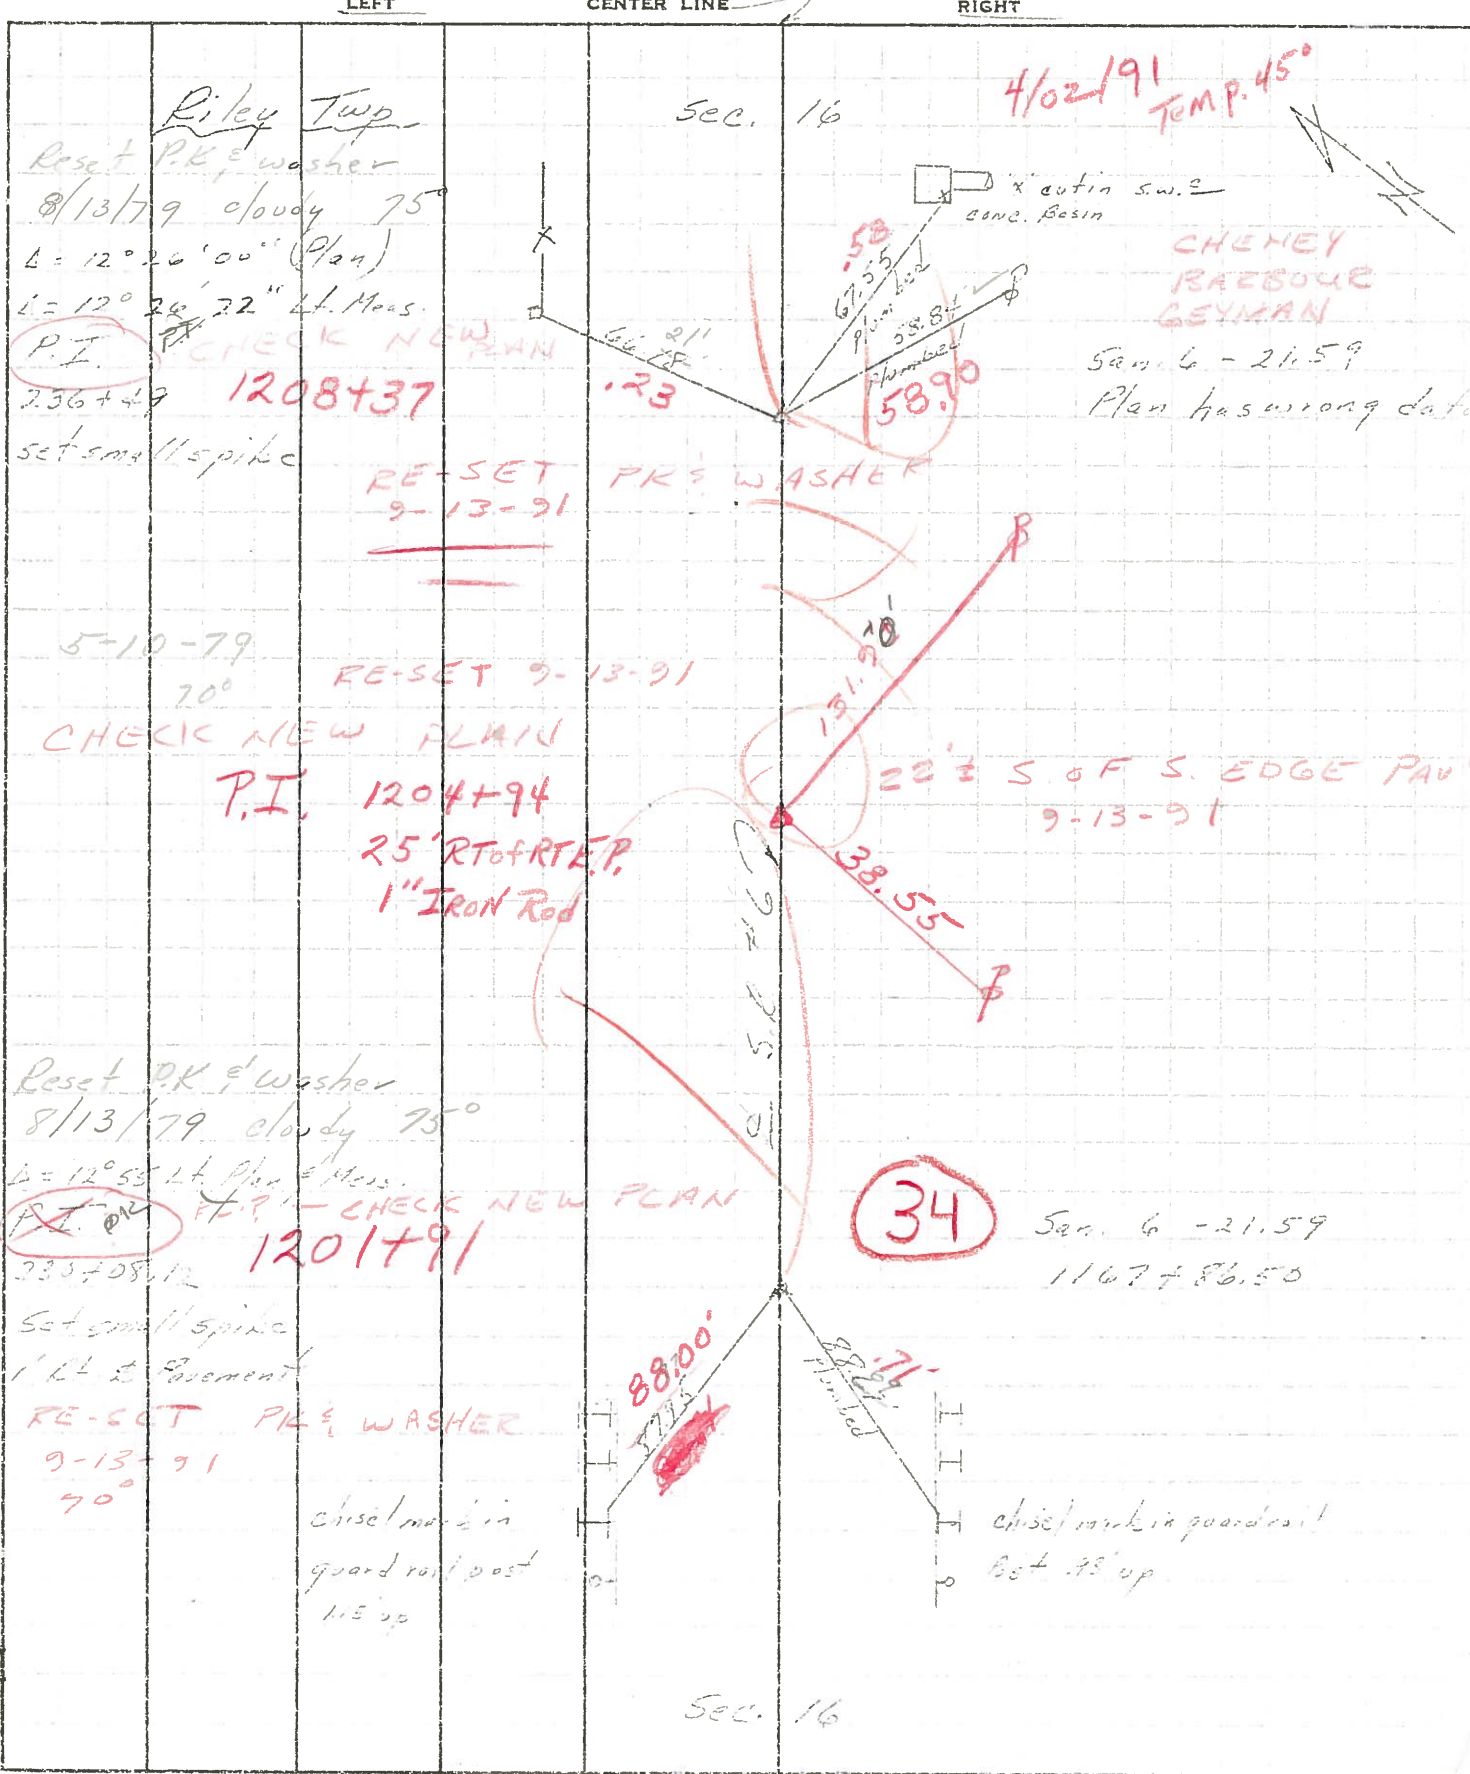 LEFT CENTER LINE RIGHT
Riley Twp
Sec. 16
4/02/91
Temp. 45°
Reset P.K & washer
8/13/79 cloudy 75°
Δ = 12° 26' 00" (Plan)
Δ = 12° 26' 22" Lt. Meas.
P.I.
CHECK NEW PLAN
236+49
1208+37
set small spike
"x" cut in S.W.
conc. Basin
.58
67.55
Plumbed
58.84'
Plumbed
58.90
66.28
21'
.23
CHENEY
BARBOUR
GEYMAN
San. 6 - 21.59
Plan has wrong data
RE-SET PK & WASHER
9-13-91
5-10-79
70°
RE-SET 9-13-91
CHECK NEW PLAIN
P.I. 1204+94
25' RT of RT E.P.
1" IRON Rod
131.90'
22'± S. OF S. EDGE PAV
9-13-91
38.55
Reset P.K & Washer
8/13/79 cloudy 75°
Δ = 12° 55' Lt. Plan & Meas.
P.I.
CHECK NEW PLAN
1201+91
230+08.12
Set small spike
1' Lt. ℄ Pavement
RE-SET PK & WASHER
9-13-91
70°
34
San. 6 - 21.59
1167+86.50
88.00'
.71
Plumbed
chisel mark in
guard rail post
1.15' up
chisel mark in guard rail
Post .95' up
Sec. 16